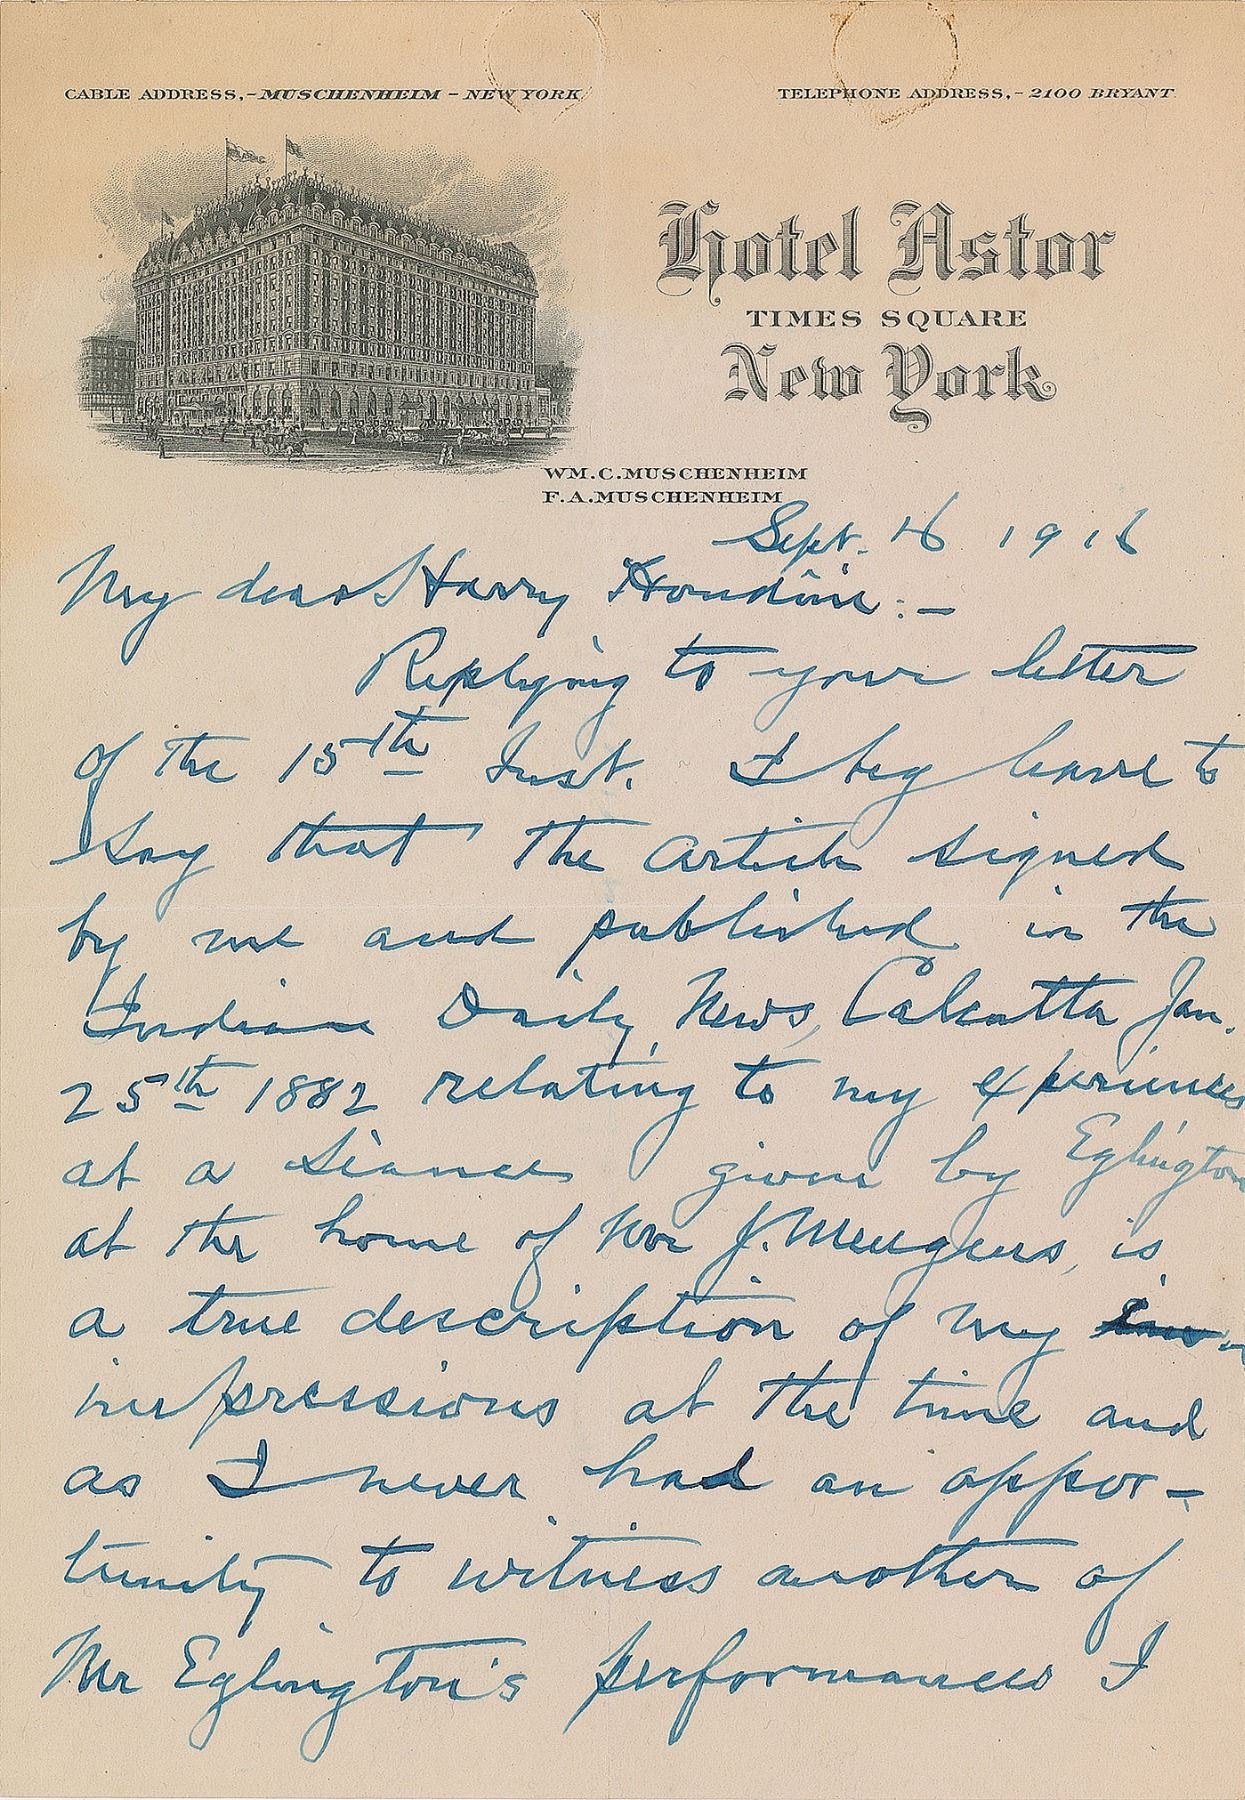 CABLE ADDRESS,-MUSCHENHEIM-NEW YORK
TELEPHONE ADDRESS,-2100 BRYANT
Hotel Astor
TIMES SQUARE
New York
WM.C.MUSCHENHEIM
F.A.MUSCHENHEIM
Sept. 16 1916
My dear Harry Houdini:-
Replying to your letter
of the 15th Inst. I beg leave to
say that the article signed
by me and published in the
Indian Daily News, Calcutta Jan.
25th 1882 relating to my experiences
at a Seance given by Eglington
at the home of Mr J. Meugens, is
a true description of my
impressions at the time and
as I never had an oppor-
tunity to witness another of
Mr Eglington's performances I